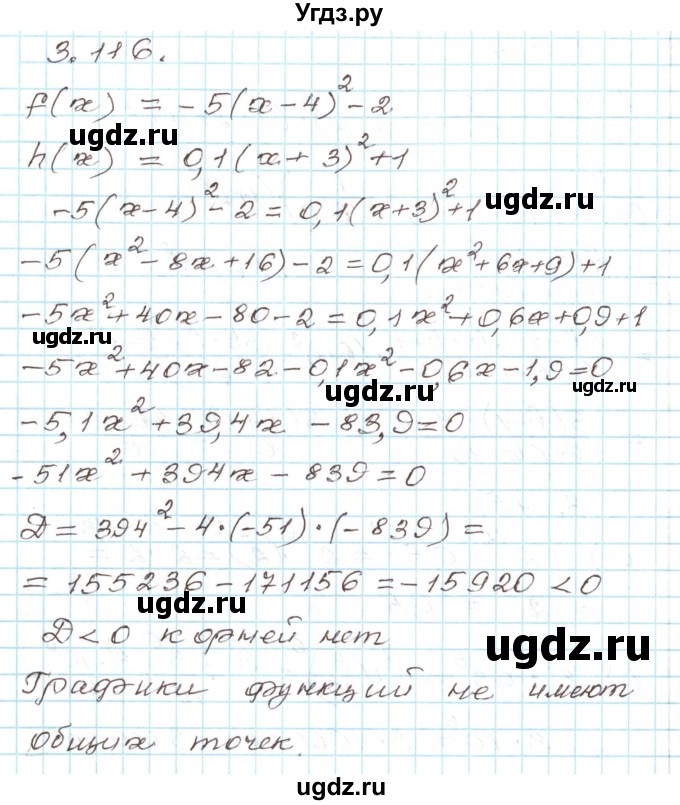 Угдз.ру
3.116.
f(x) = -5(x-4)²-2
ugdz.ru
h(x) = 0,1(x+3)²+1
ugdz.ru
-5(x-4)²-2=0,1(x+3)²+1
-5(x²-8x+16)-2=0,1(x²+6x+9)+1
-5x²+40x-80-2=0,1x²+0,6x+0,9+1
ugdz.ru
-5x²+40x-82-0,1x²-0,6x-1,9=0
ugdz.ru
ugdz.ru
-5,1x²+39,4x-83,9=0
-51x²+394x-839=0
D=394²-4·(-51)·(-839)=
=155236-171156=-15920<0
ugdz.ru
D<0 корней нет
ugdz.ru
Графики функций не имеют
общих точек.
ugdz.ru